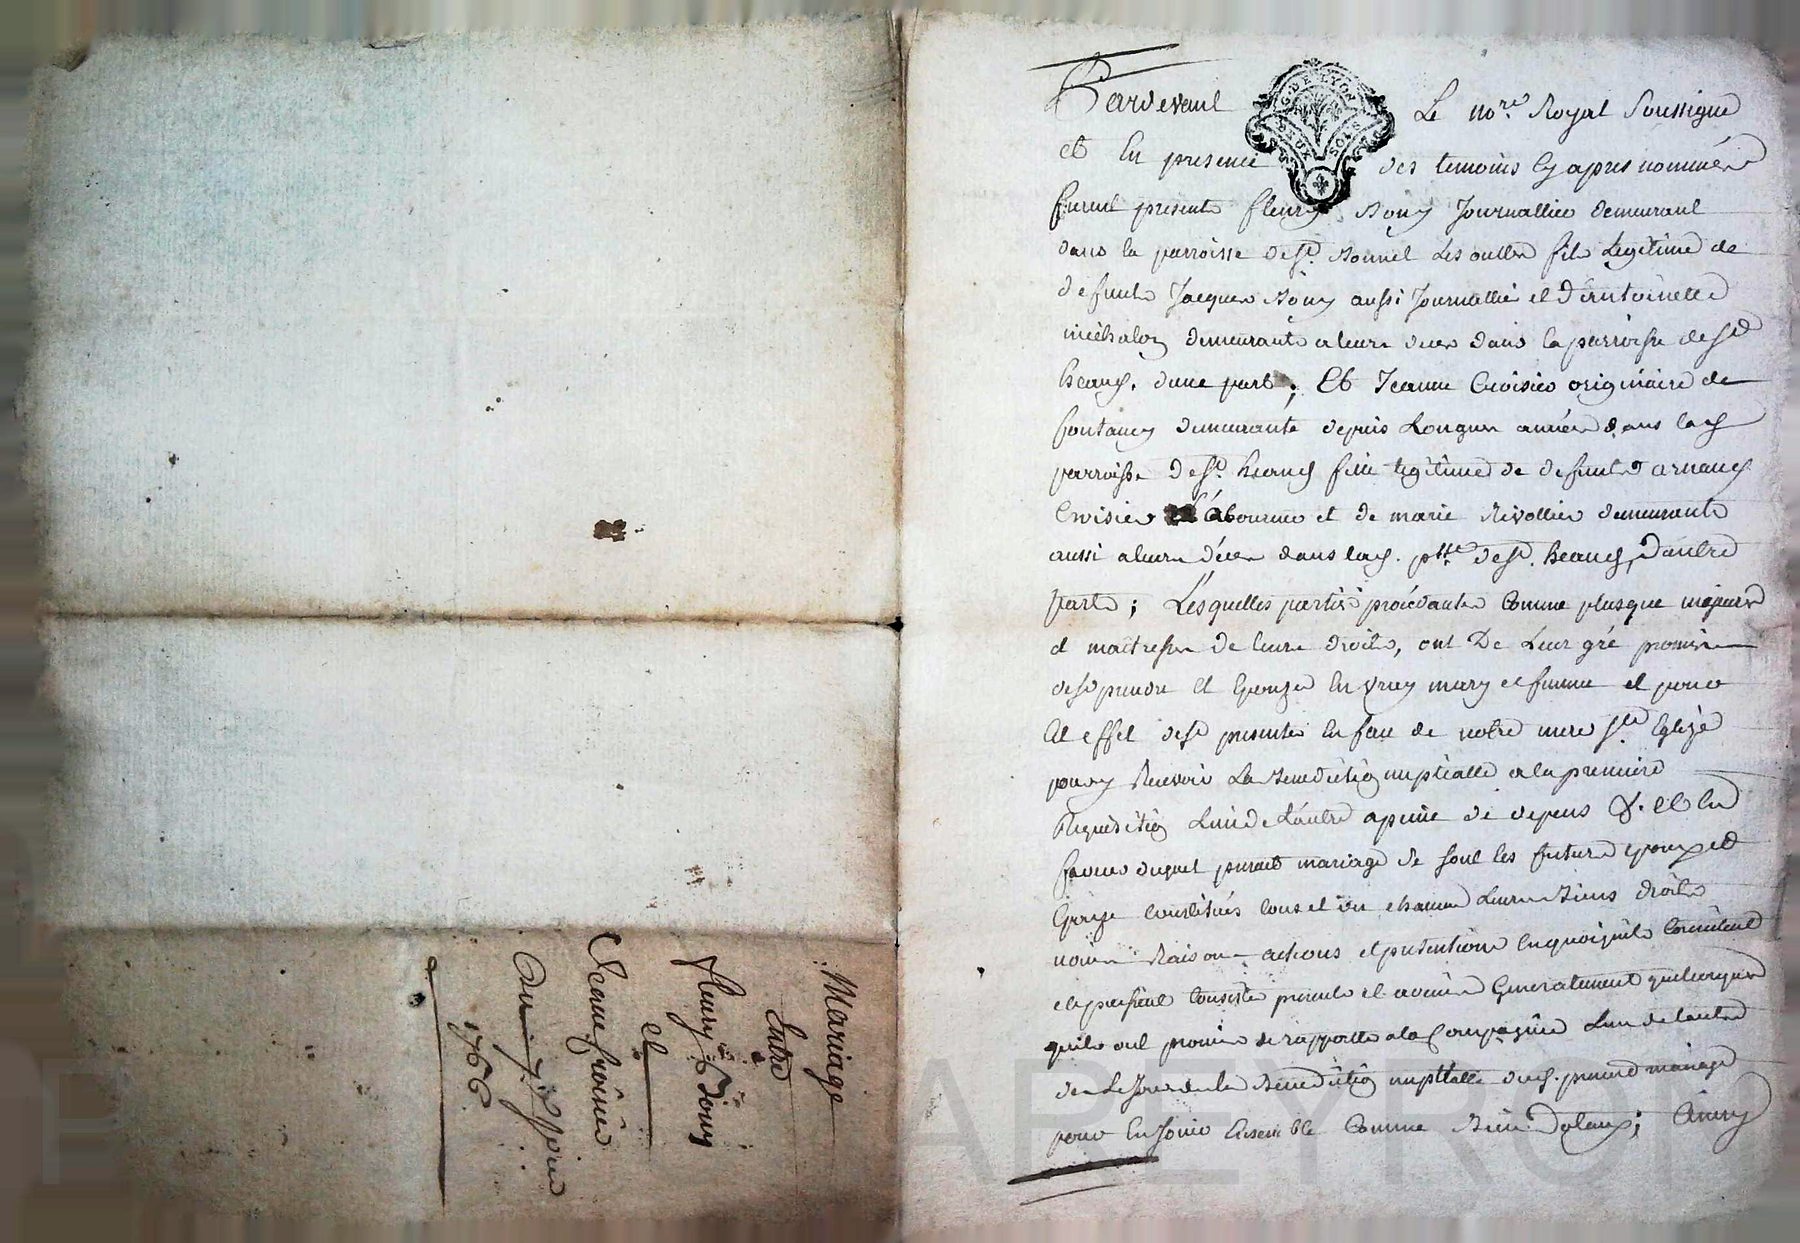 Mariage
Entre
fleury Bony
et
Jeanne Croisier
Du 7e
1766.
G. DE LYON
DEUX SOLS
Pardevant Le no.re Royal Soussigné
et En presence des temoins Cy apres nommés
furent presents fleury Bony Journallier demeurant
dans la parroisse de St. Bonnet Les oulles fils Legitime de
defunts Jacques Bony aussi Journallier et d'Antoinette
michalon demeurants a leurs deces dans la parroisse de St
heand, d'une part; Et Jeanne Croisier originaire de
fontanes demeurante depuis Longues années dans lad
parroisse de St. heand fille legitime de defunts arnaud
Croisier Laboureur et de marie Rivollier demeurants
aussi a leurs déces dans lad. psse de St. heand, D'autre
part; Lesquelles parties procedantes Comme plus que majeurs
et maitresses de leurs droits, ont De Leur gré promis
de se prendre et Epouser En vray mary et femme et pour
Cet effet de se presenter En face de notre mere Ste Eglise
pour y Recevoir La Benediction nuptialle a la premiere
Requisition L'un de L'autre a peine de depens &. et En
faveur duquel present mariage se sont les futurs epoux et
Epouse Constitués tous et un chacun Leurs Biens droits
noms Raisons actions et pretentions En quoi qu'ils Consistent
et puissent Consister presents et avenir Generalement quelconques
qu'ils ont promis de rapporter a la Compagnie L'un de L'autre
des Le Jour de la Benediction nuptialle dud. present mariage
pour En Jouir Ensemble Comme Biens Dotaux; Ainsy